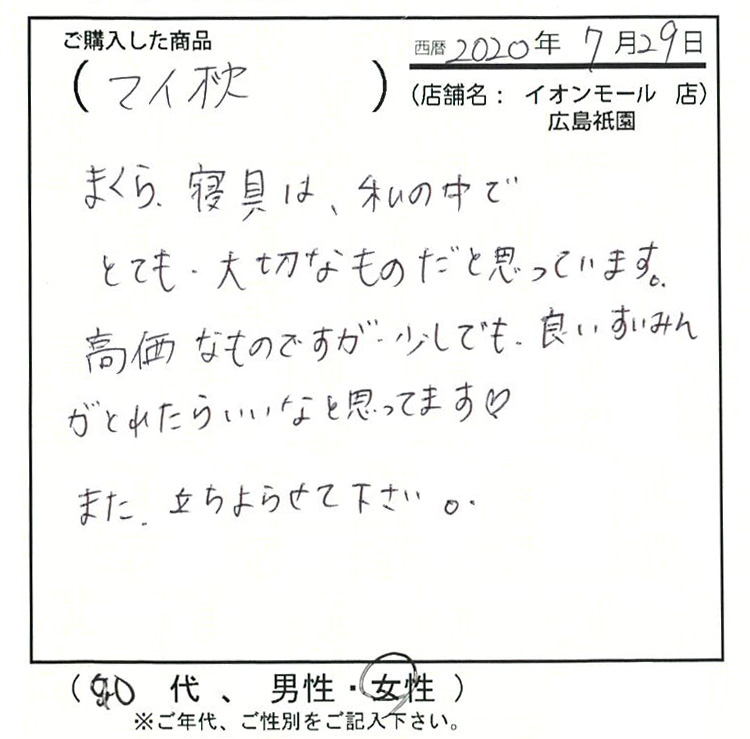 ご購入した商品
(マイ枕)
西暦2020年 7月29日
(店舗名: イオンモール 店)
広島祇園
まくら、寝具は、私の中で
とても、大切なものだと思っています。
高価なものですが、少しでも、良いすいみん
がとれたらいいなと思ってます♡
また、立ちよらせて下さい。
代、男性・女性)
※ご年代、ご性別をご記入下さい。